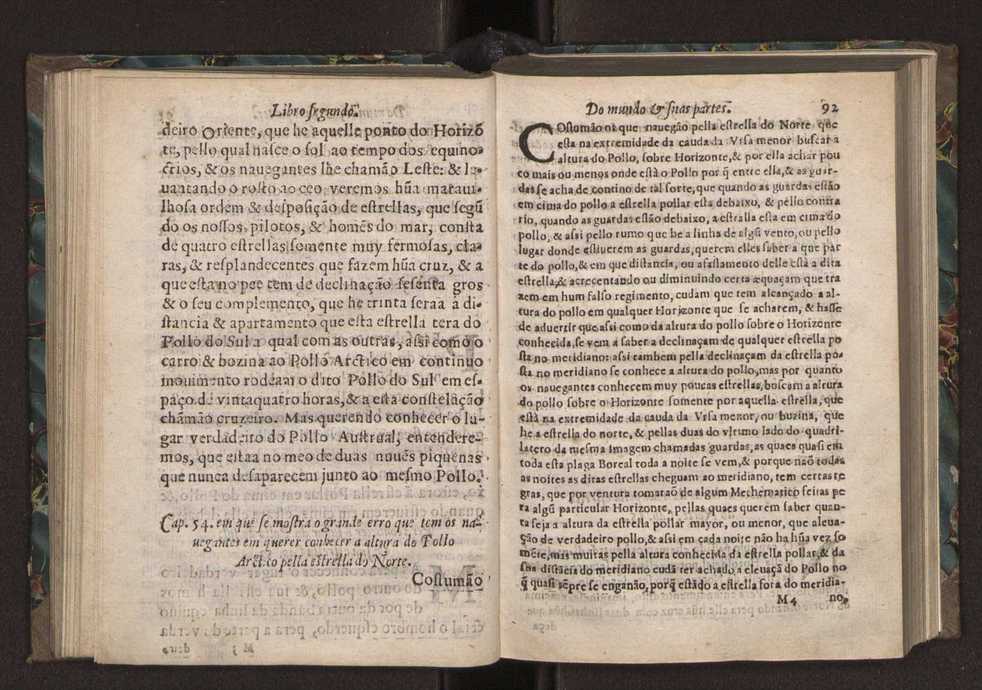 Libro segundo.
deiro Oriente, que he aquelle ponto do Horizõ
te, pello qual nasce o sol ao tempo dos equino-
ctios, & os nauegantes lhe chamão Leste: & le-
uantando o rosto ao ceo, veremos hũa maraui-
lhosa ordem & desposição de estrellas, que segũ
do os nossos pilotos, & homẽs do mar, consta
de quatro estrellas somente muy fermosas, cla-
ras, & resplandecentes que fazem hũa cruz, & a
que esta no pee tem de declinação sesenta gros
& o seu complemento, que he trinta seraa a di-
stancia & apartamento que esta estrella tera do
Pollo do Sul a qual com as outras, assi como o
carro & bozina ao Pollo Arctico em continuo
mouimento rodeam o dito Pollo do Sul em es-
paço de vintaquatro horas, & a esta constelação
chamão cruzeiro. Mas querendo conhecer o lu-
gar verdadeiro do Pollo Austraal, entendere-
mos, que estaa no meo de duas nuuẽs piquenas
que nunca desaparecem junto ao mesmo Pollo.
Cap. 54. em que se mostra o grande erro que tem os na-
uegantes em querer conhecer a altura do Pollo
Arctico pella estrella do Norte.
Costumão
Do mundo & suas partes. 92
COstumão os que nauegão pella estrella do Norte que
esta na extremidade da cauda da Vrsa menor buscar a
altura do Pollo, sobre Horizonte, & por ella achar pou
co mais ou menos onde està o Pollo por q̃ entre ella, & as guar-
das se acha de contino de tal sorte, que quando as guardas estão
em cima do pollo a estrella pollar esta debaixo, & pello contra
rio, quando as guardas estão debaixo, a estralla esta em cima do
pollo, & assi pello rumo que he a linha de algũ vento, ou pello
lugar donde estiuerem as guardas, querem elles saber a que par
te do pollo, & em que distancia, ou afastamento delle està a dita
estrella, & acrecentando ou diminuindo certa æquaçam que tra
zem em hum falso regimento, cudam que tem alcançado a al-
tura do pollo em qualquer Horizonte que se acharem, & hasse
de aduertir que assi como da altura do pollo sobre o Horizonte
conhecida, se vem a saber a declinaçam de qualquer estrella po
sta no meridiano: assi tambem pella declinaçam da estrella po-
sta no meridiano se conhece a altura do pollo, mas por quanto
os nauegantes conhecem muy poucas estrellas, buscam a altura
do pollo sobre o Horizonte somente por aquella estrella, que
està na extremidade da cauda da Vrsa menor, ou buzina, que
he a estrella do norte, & pellas duas do vltimo lado do quadri-
latero da mesma imagem chamadas guardas, as quaes quasi em
toda esta plaga Boreal toda a noite se vem, & porque não todas
as noites as ditas estrellas chegam ao meridiano, tem certas re
gras, que por ventura tomarão de algum Mathematico feitas pe
ra algũ particular Horizonte, pellas quaes querem saber quan-
ta seja a altura da estrella pollar mayor, ou menor, que aleua-
ção de verdadeiro pollo, & assi em cada noite não ha hũa vez so
mẽte, mas muitas pella altura conhecida da estrella pollar, & da
sua distãcia do meridiano cuda ter achado a eleuaçã do Pollo no
q̃ quasi sẽpre se enganão, porq̃ estãdo a estrella fora do meridia-
M 4 no,